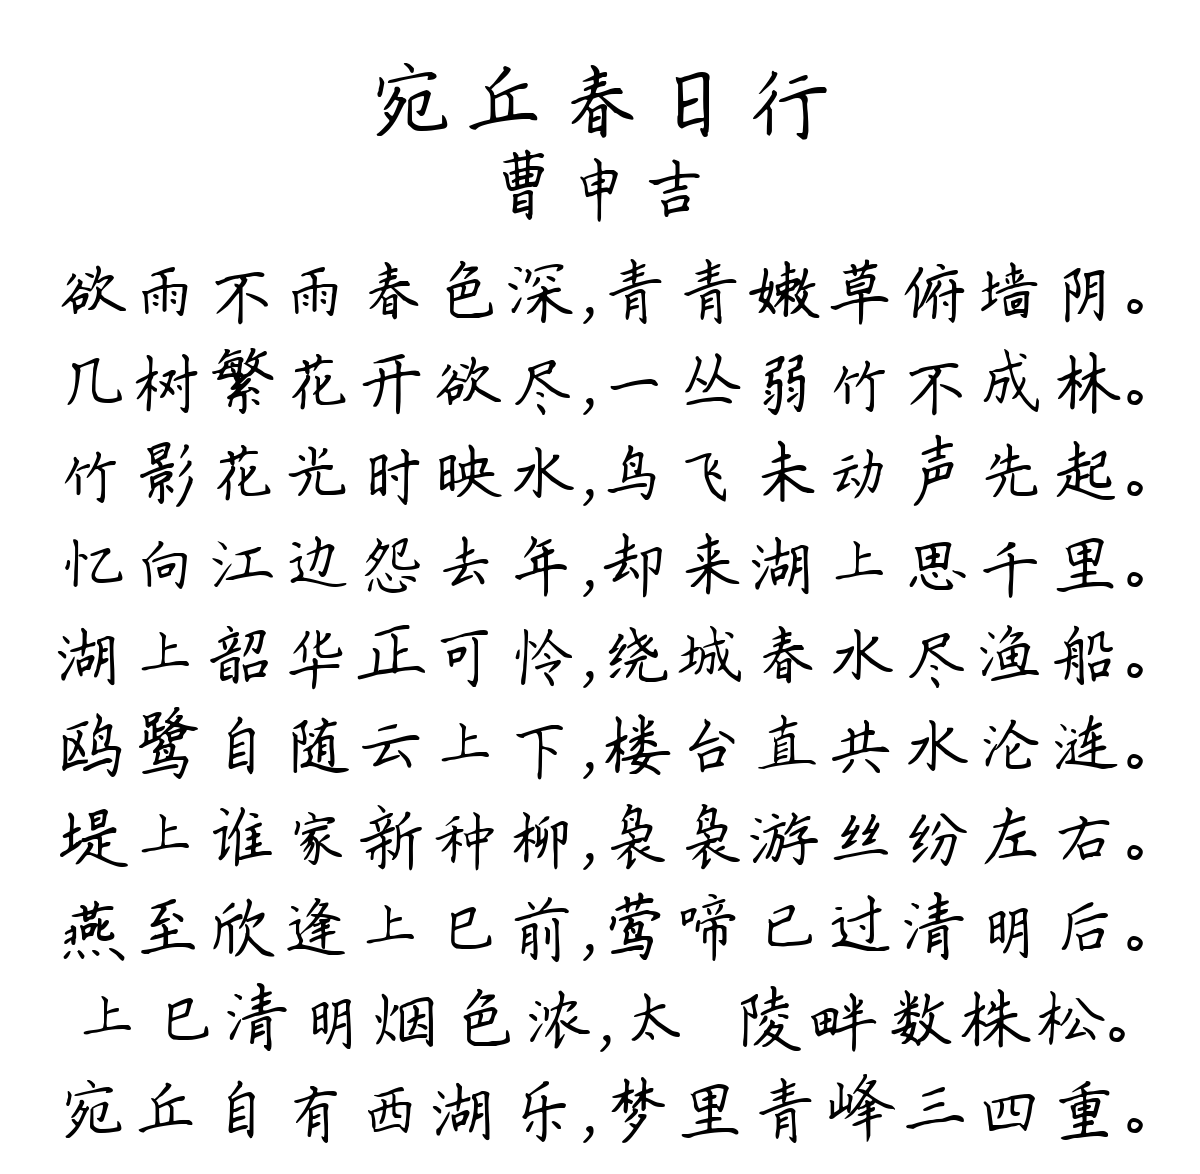 宛丘春日行
曹申吉
欲雨不雨春色深,青青嫩草俯墙阴。
几树繁花开欲尽,一丛弱竹不成林。
竹影花光时映水,鸟飞未动声先起。
忆向江边怨去年,却来湖上思千里。
湖上韶华正可怜,绕城春水尽渔船。
鸥鹭自随云上下,楼台直共水沦涟。
堤上谁家新种柳,袅袅游丝纷左右。
燕至欣逢上巳前,莺啼已过清明后。
上巳清明烟色浓,太 陵畔数株松。
宛丘自有西湖乐,梦里青峰三四重。